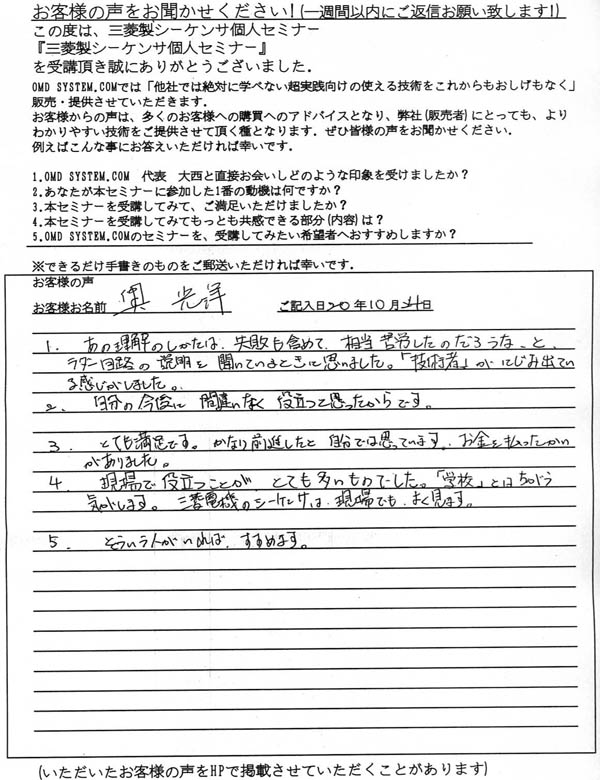 お客様の声をお聞かせください!(一週間以内にご返信お願い致します!)
この度は、三菱製シーケンサ個人セミナー
『三菱製シーケンサ個人セミナー』
を受講頂き誠にありがとうございました.
OMD SYSTEM.COMでは「他社では絶対に学べない超実践向けの使える技術をこれからもおしげもなく」
販売・提供させていただきます.
お客様からの声は、多くのお客様への購買へのアドバイスとなり、弊社(販売者)にとっても、より
わかりやすい技術をご提供させて頂く種となります. ぜひ皆様の声をお聞かせください.
例えばこんな事にお答えいただければ幸いです.
1.OMD SYSTEM.COM 代表 大西と直接お会いしどのような印象を受けましたか?
2.あなたが本セミナーに参加した1番の動機は何ですか?
3.本セミナーを受講してみて、ご満足いただけましたか?
4.本セミナーを受講してみてもっとも共感できる部分(内容)は?
5.OMD SYSTEM.COMのセミナーを、受講してみたい希望者へおすすめしますか?
※できるだけ手書きのものをご郵送いただければ幸いです.
お客様の声
お客様お名前 奥 光洋 ご記入日20年10月24日
1. あの理解のしかたは、失敗も含めて、相当苦労したのだろうな、と、
ラダー回路の説明を聞いているときに思いました。「技術者」がにじみ出てい
る感じがしました。
2. 自分の今後に間違いなく役立つと思ったからです。
3. とても満足です。かなり前進したと自分では思っています。お金を払ったかい
がありました。
4. 現場で役立つことが、とても多いものでした。「学校」とはちがう
気がします。三菱電機のシーケンサは、現場でも、よく見ます。
5. そういう人がいれば、すすめます。
(いただいたお客様の声をHPで掲載させていただくことがあります)